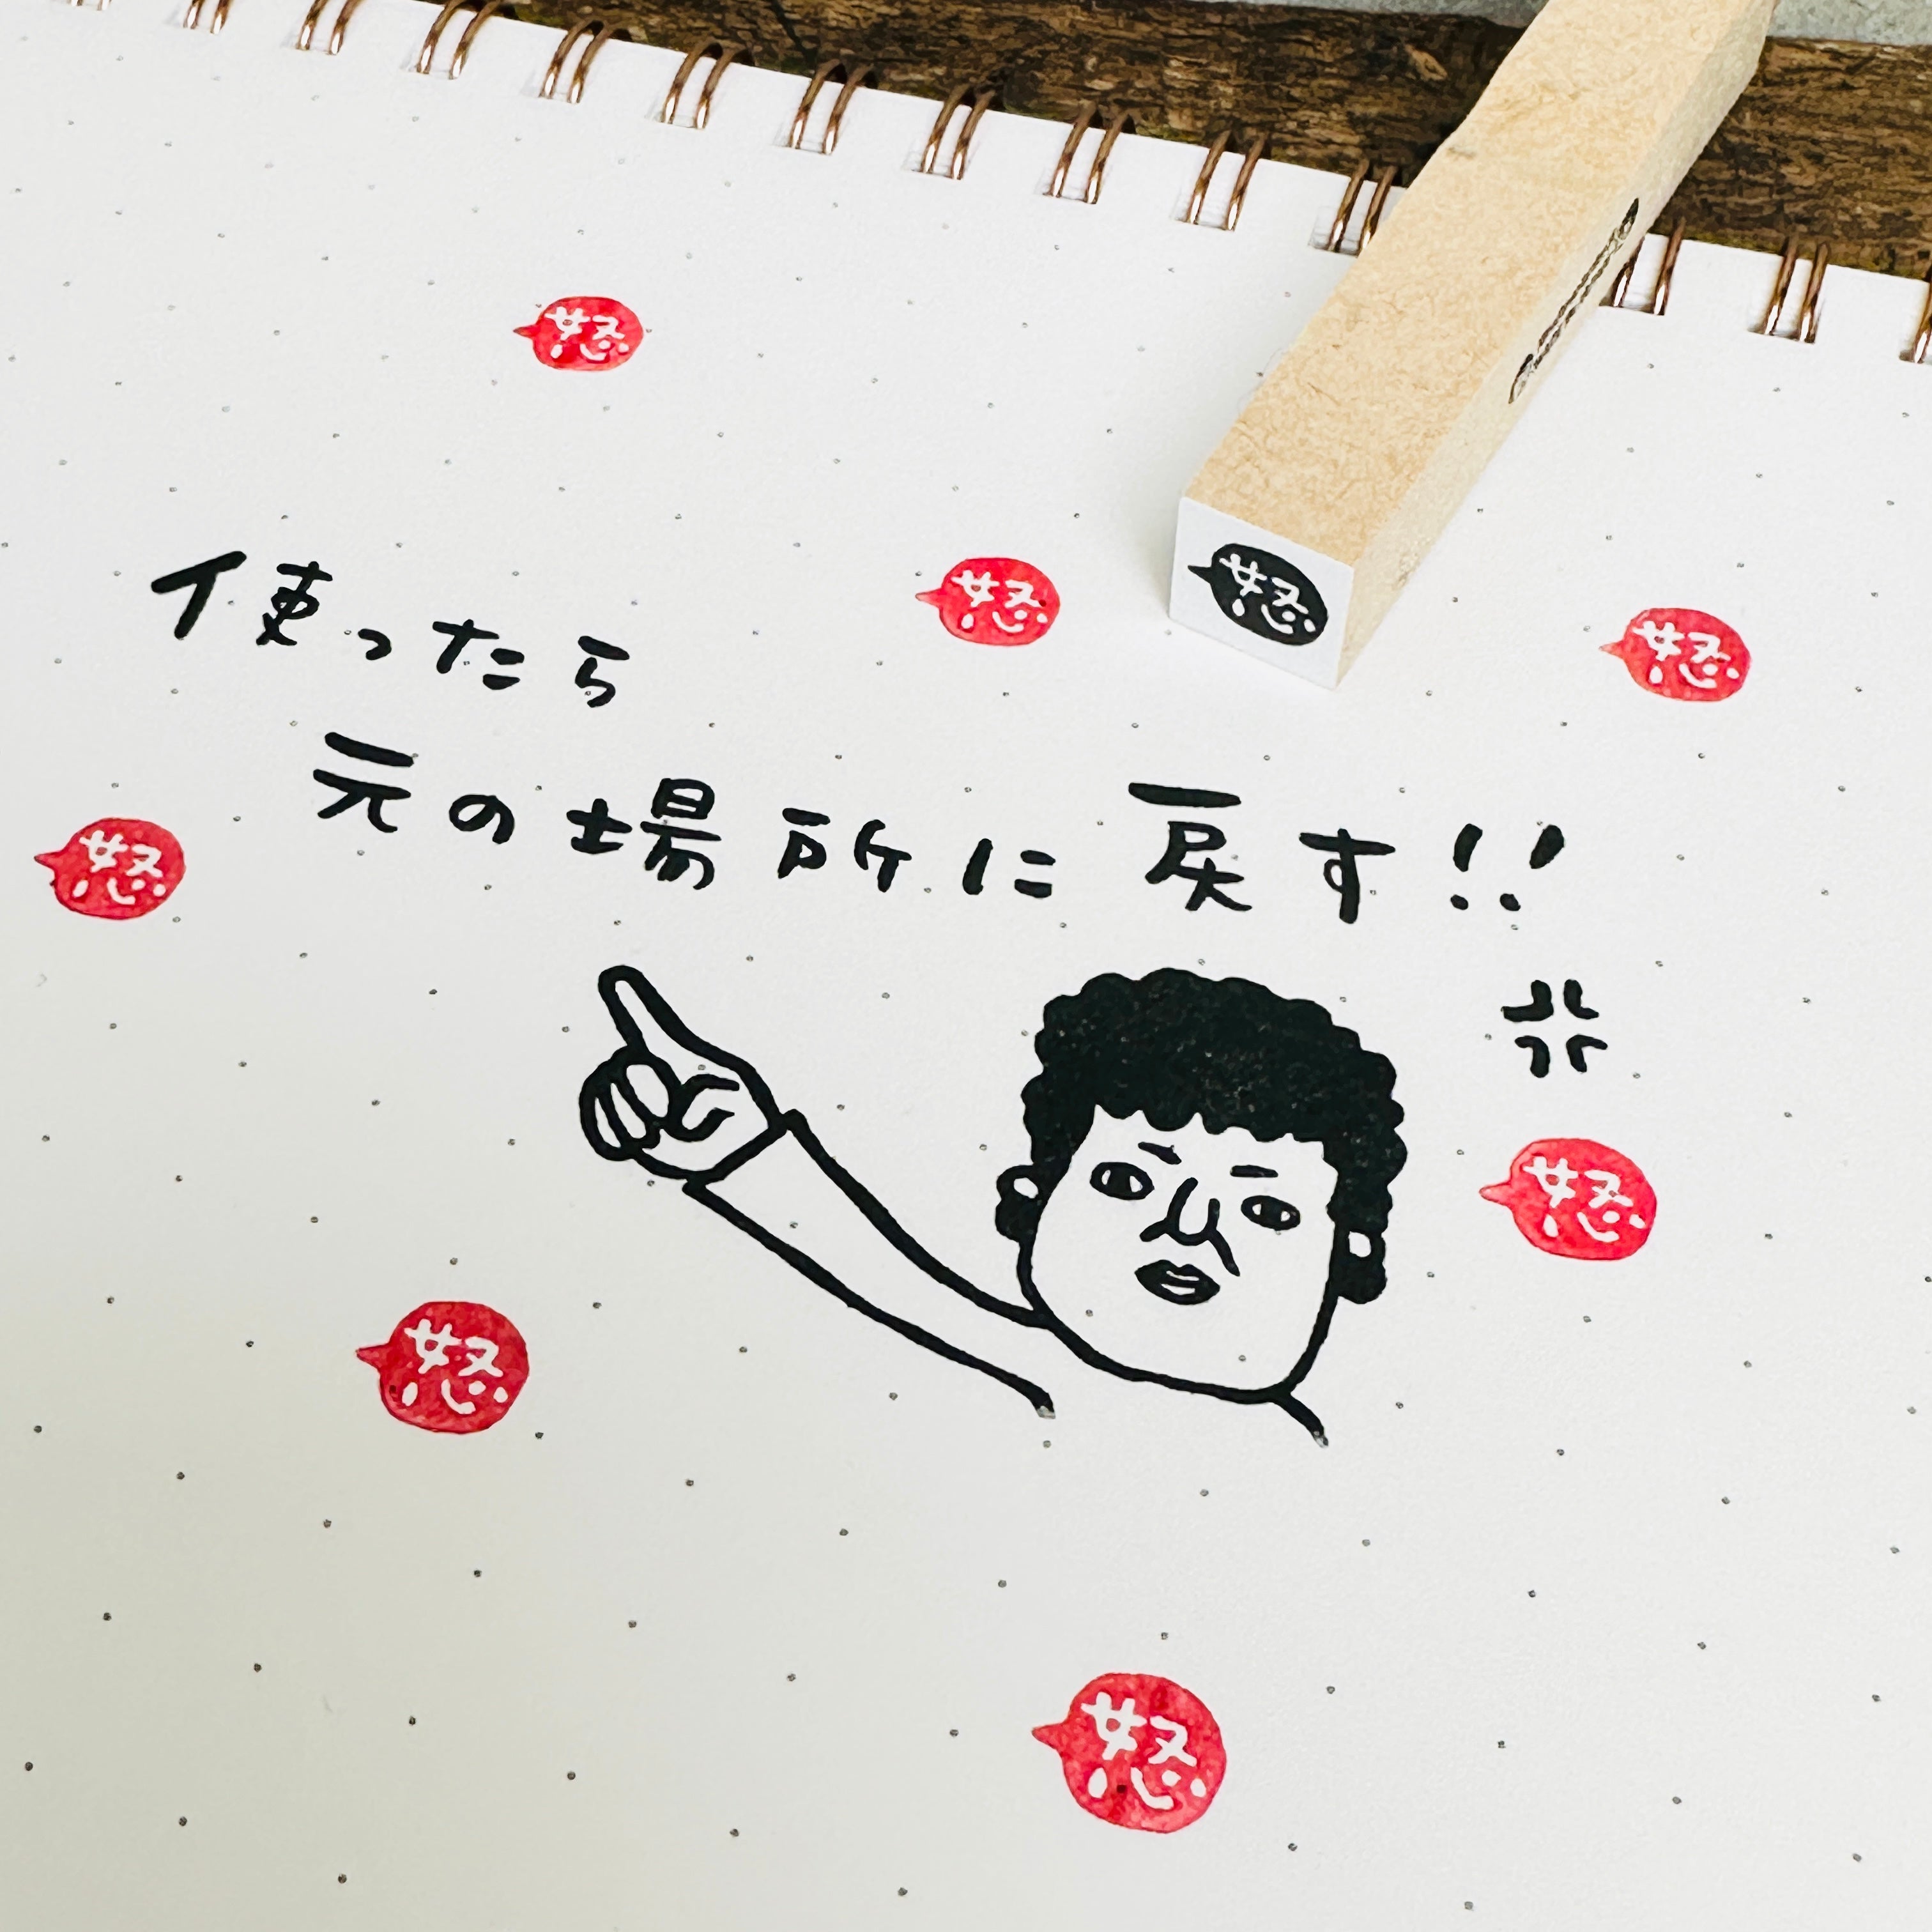 怒
怒
怒
怒
使ったら
元の場所に戻す!!
怒
怒
怒
怒